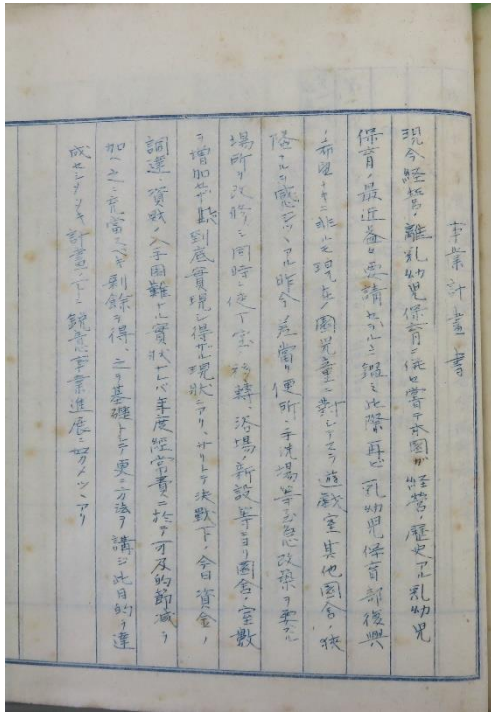 事業計畫書
現今経営ノ離乳幼児保育ニ併セ嘗テ本園ガ経営ノ歴史アル乳幼児
保育ノ最近益々要請セラルニ鑑ミ此際再ビ乳幼児保育部復興
ノ希望ナキニ非ルモ現在ノ園児童ニ対シテスラ遊戯室其他園舎ノ狭
隘ヲ感ジツヽアル昨今差當リ便所、手洗場等至急改築ヲ要スル
場所ノ改修ト同時ニ使丁室ノ移轉、浴場ノ新設等ヨリ園舎ノ室数
ヲ増加セザレバ到底實現シ得ザル現状ニアリ、サリトテ決戦下ノ今日資金ノ
調達、資材ノ入手困難ナル實状ナレバ年度経常費ニ於テ可及的節減ヲ
加ヘ之ニ充當スベキ剰餘ヲ得、之ヲ基礎トシテ更ニ方法ヲ講ジ此目的ヲ達
成セシメンキ計畫ノ下ニ鋭意事業進展ニ努メツヽアリ